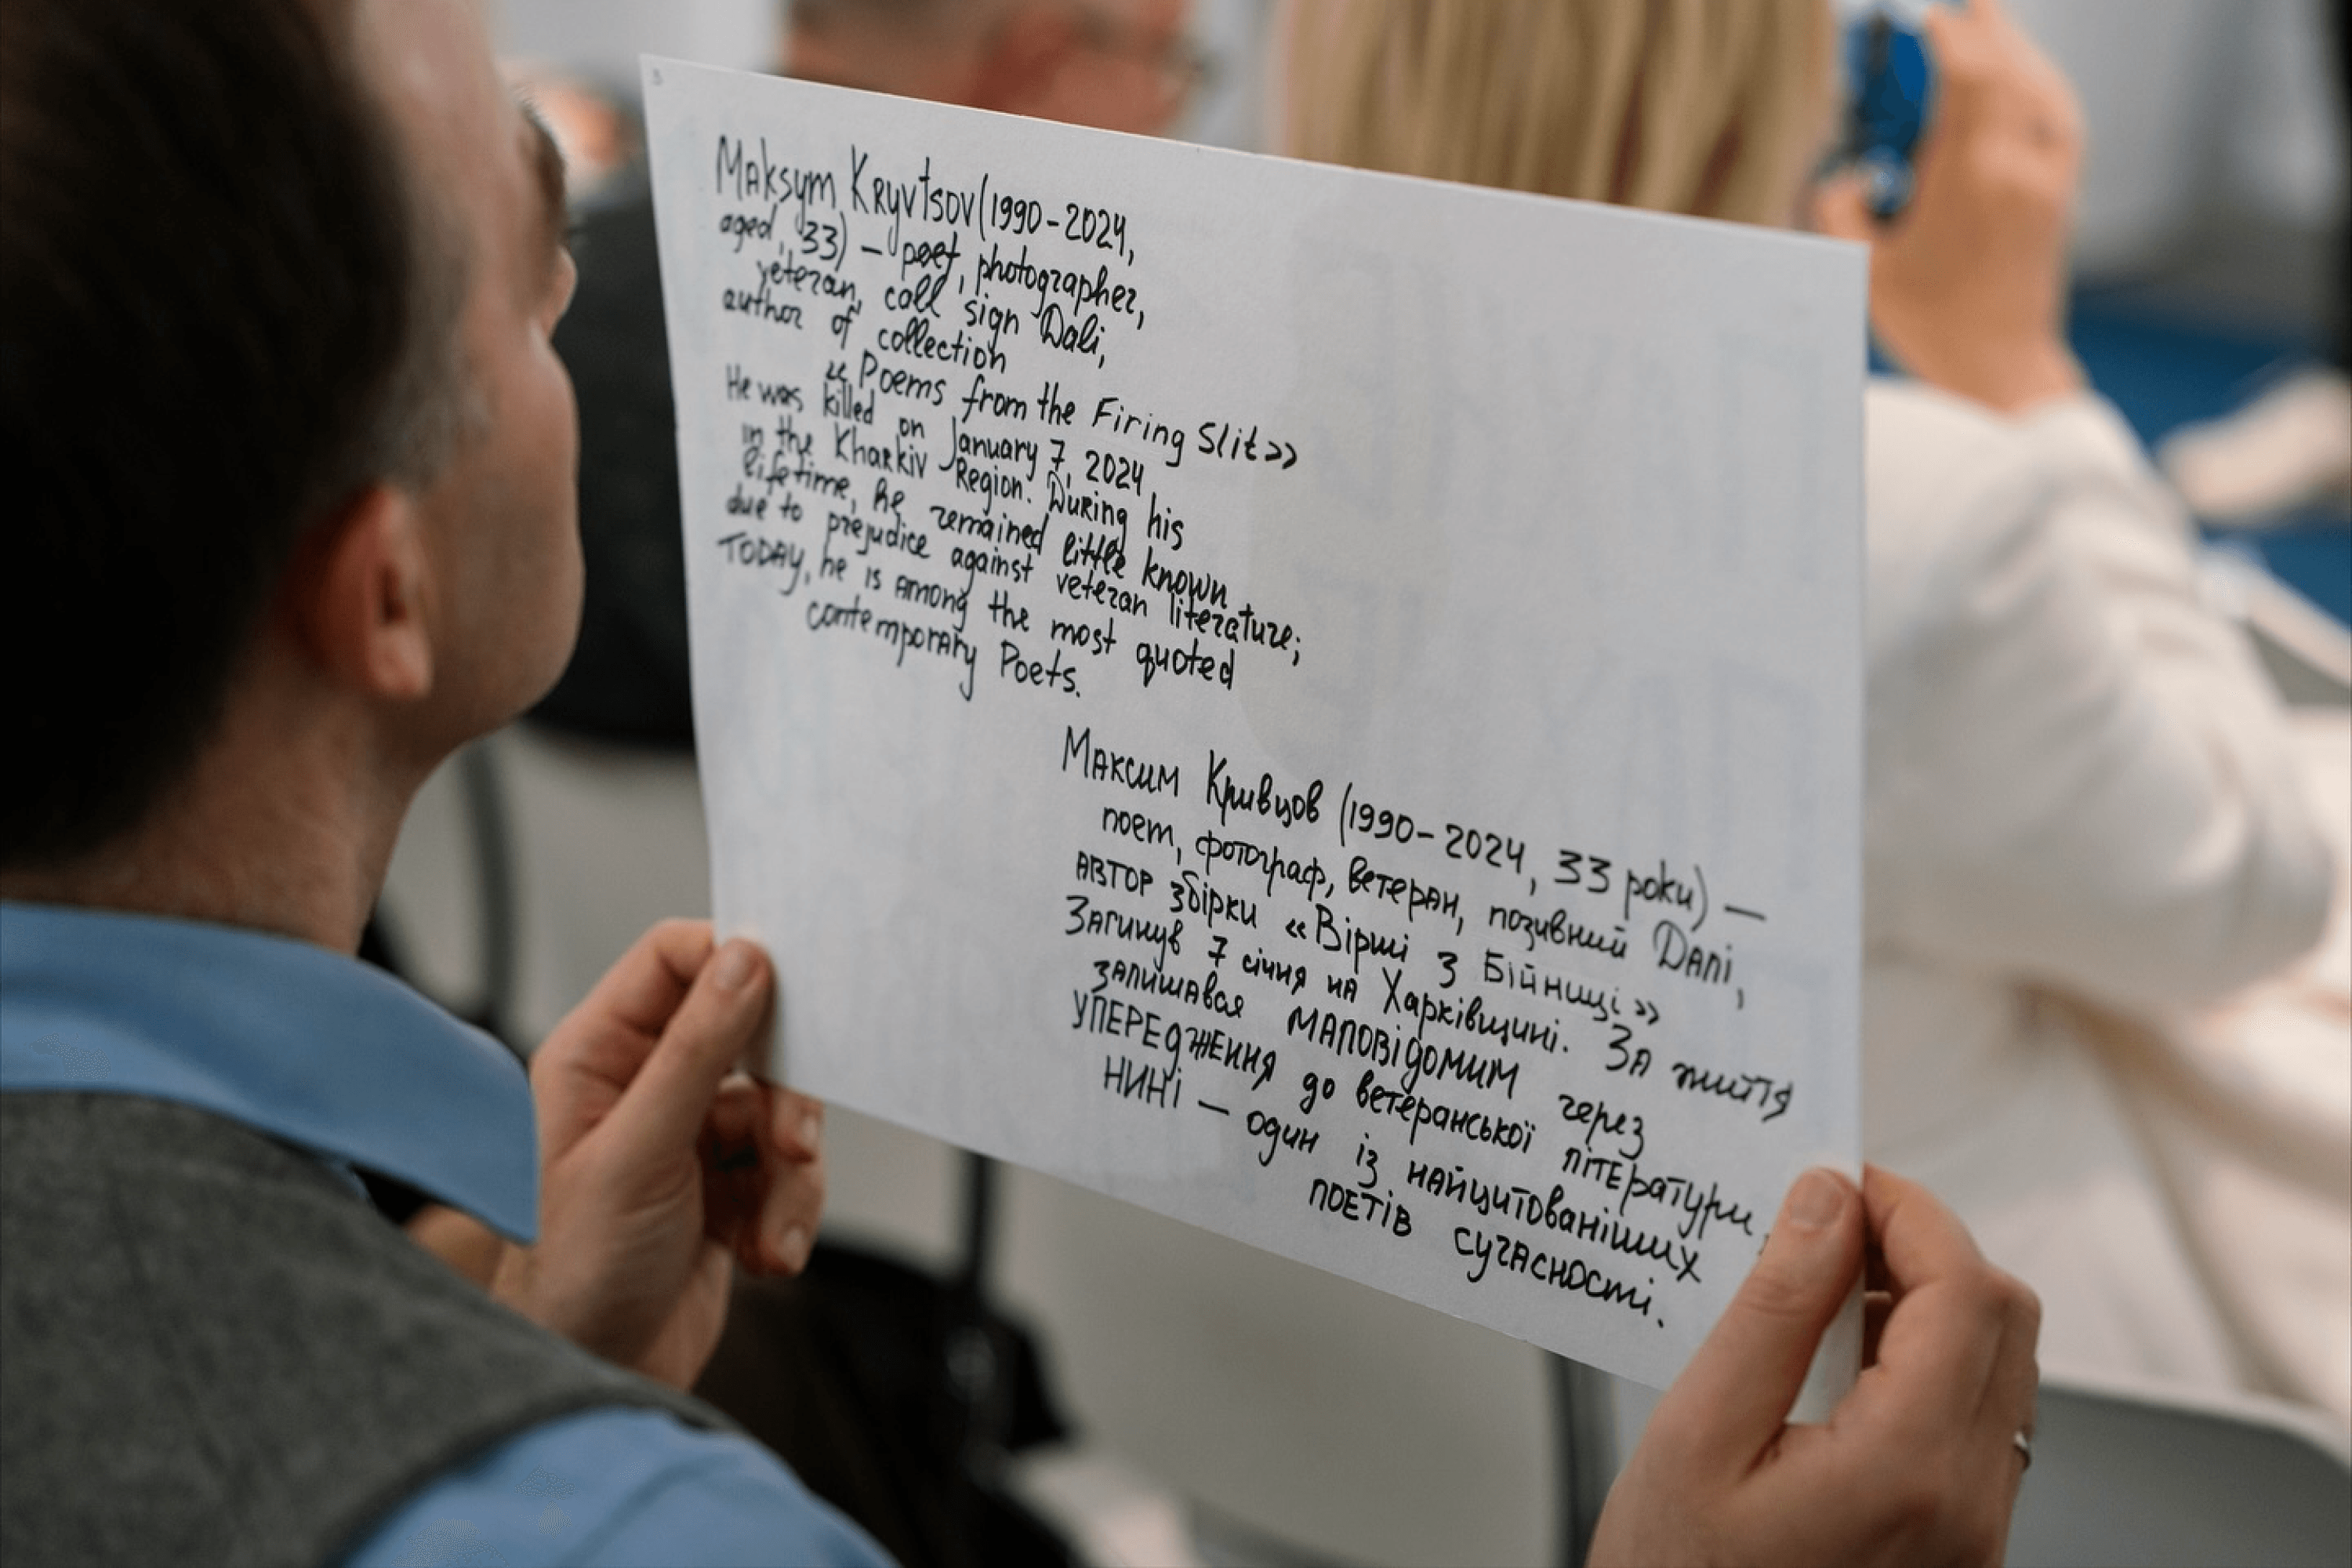 Maksym Kryvtsov (1990-2024,
aged, 33) – poet, photographer,
veteran, call sign Dali,
author of collection
«Poems from the Firing Slit»
He was killed on January 7, 2024
in the Kharkiv Region. During his
lifetime, he remained little known
due to prejudice against veteran literature;
TODAY, he is among the most quoted
contemporary Poets.
Максим Кривцов (1990-2024, 33 роки) —
поет, фотограф, ветеран, позивний Далі,
автор збірки «Вірші з Бійниці»
Загинув 7 січня на Харківщині. За життя
залишався маловідомим через
УПЕРЕДЖЕННЯ до ветеранської літератури,
НИНІ — один із найцитованіших
поетів сучасності.